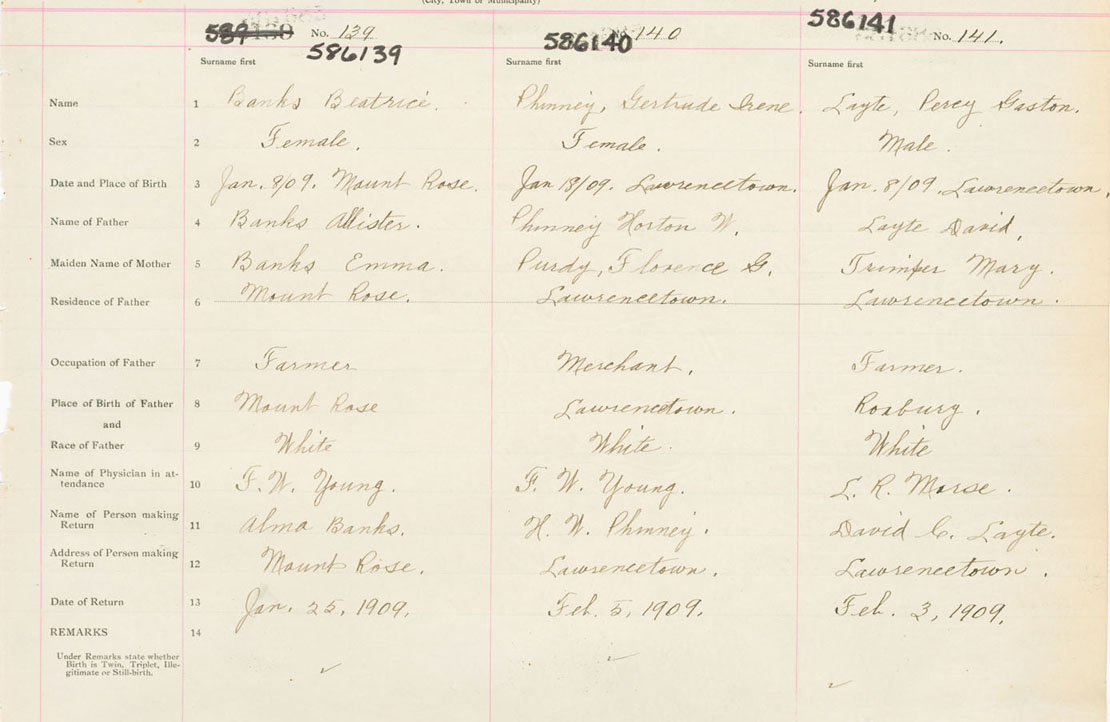 (City, Town or Municipality)
No. 139 No. 140 586141 No. 141.
586139 586140
Surname first Surname first Surname first
Name 1 Banks Beatrice. Phinney, Gertrude Irene. Layte, Percy Gaston.
Sex 2 Female. Female. Male.
Date and Place of Birth 3 Jan. 8/09. Mount Rose. Jan 18/09. Lawrencetown. Jan. 8/09. Lawrencetown.
Name of Father 4 Banks Allister. Phinney Horton W. Layte David,
Maiden Name of Mother 5 Banks Emma. Purdy, Florence G. Trimper Mary.
Residence of Father 6 Mount Rose. Lawrencetown. Lawrencetown.
Occupation of Father 7 Farmer Merchant. Farmer.
Place of Birth of Father 8 Mount Rose Lawrencetown. Roxbury.
and
Race of Father 9 White White. White
Name of Physician in at-
tendance 10 F. W. Young. F. W. Young. L. R. Morse.
Name of Person making
Return 11 Alma Banks. H. W. Phinney. David C. Layte.
Address of Person making
Return 12 Mount Rose. Lawrencetown. Lawrencetown.
Date of Return 13 Jan. 25, 1909. Feb. 5, 1909. Feb. 3, 1909.
REMARKS 14
Under Remarks state whether
Birth is Twin, Triplet, Ille-
gitimate or Still-birth.